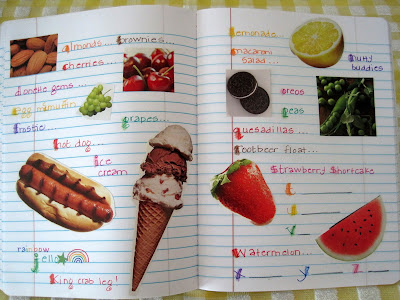 almonds... brownies...
cherries...
dionette gems...
egg mcmuffin
frostie...
grapes...
hot dog...
ice
cream
rainbow
Jello
king crab leg!
lemonade...
macaroni
salad...
nutty
buddies
oreos
peas
quesadillas...
rootbeer float...
strawberry shortcake
t
u
v
watermelon...
x y z